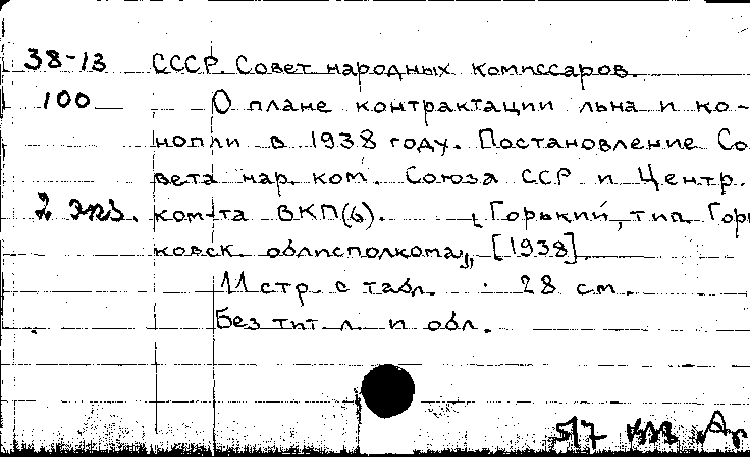 38-13 СССР. Совет народных комиссаров.
100 О плане контрактации льна и ко-
нопли в 1938 году. Постановление Со
вета нар. ком. Союза ССР и Центр.
2 экз. ком-та ВКП(б). [Горький, тип. Горь
ковск. облисполкома], [1938]
11 стр. с табл. 28 см.
Без тит. л. и обл.
517